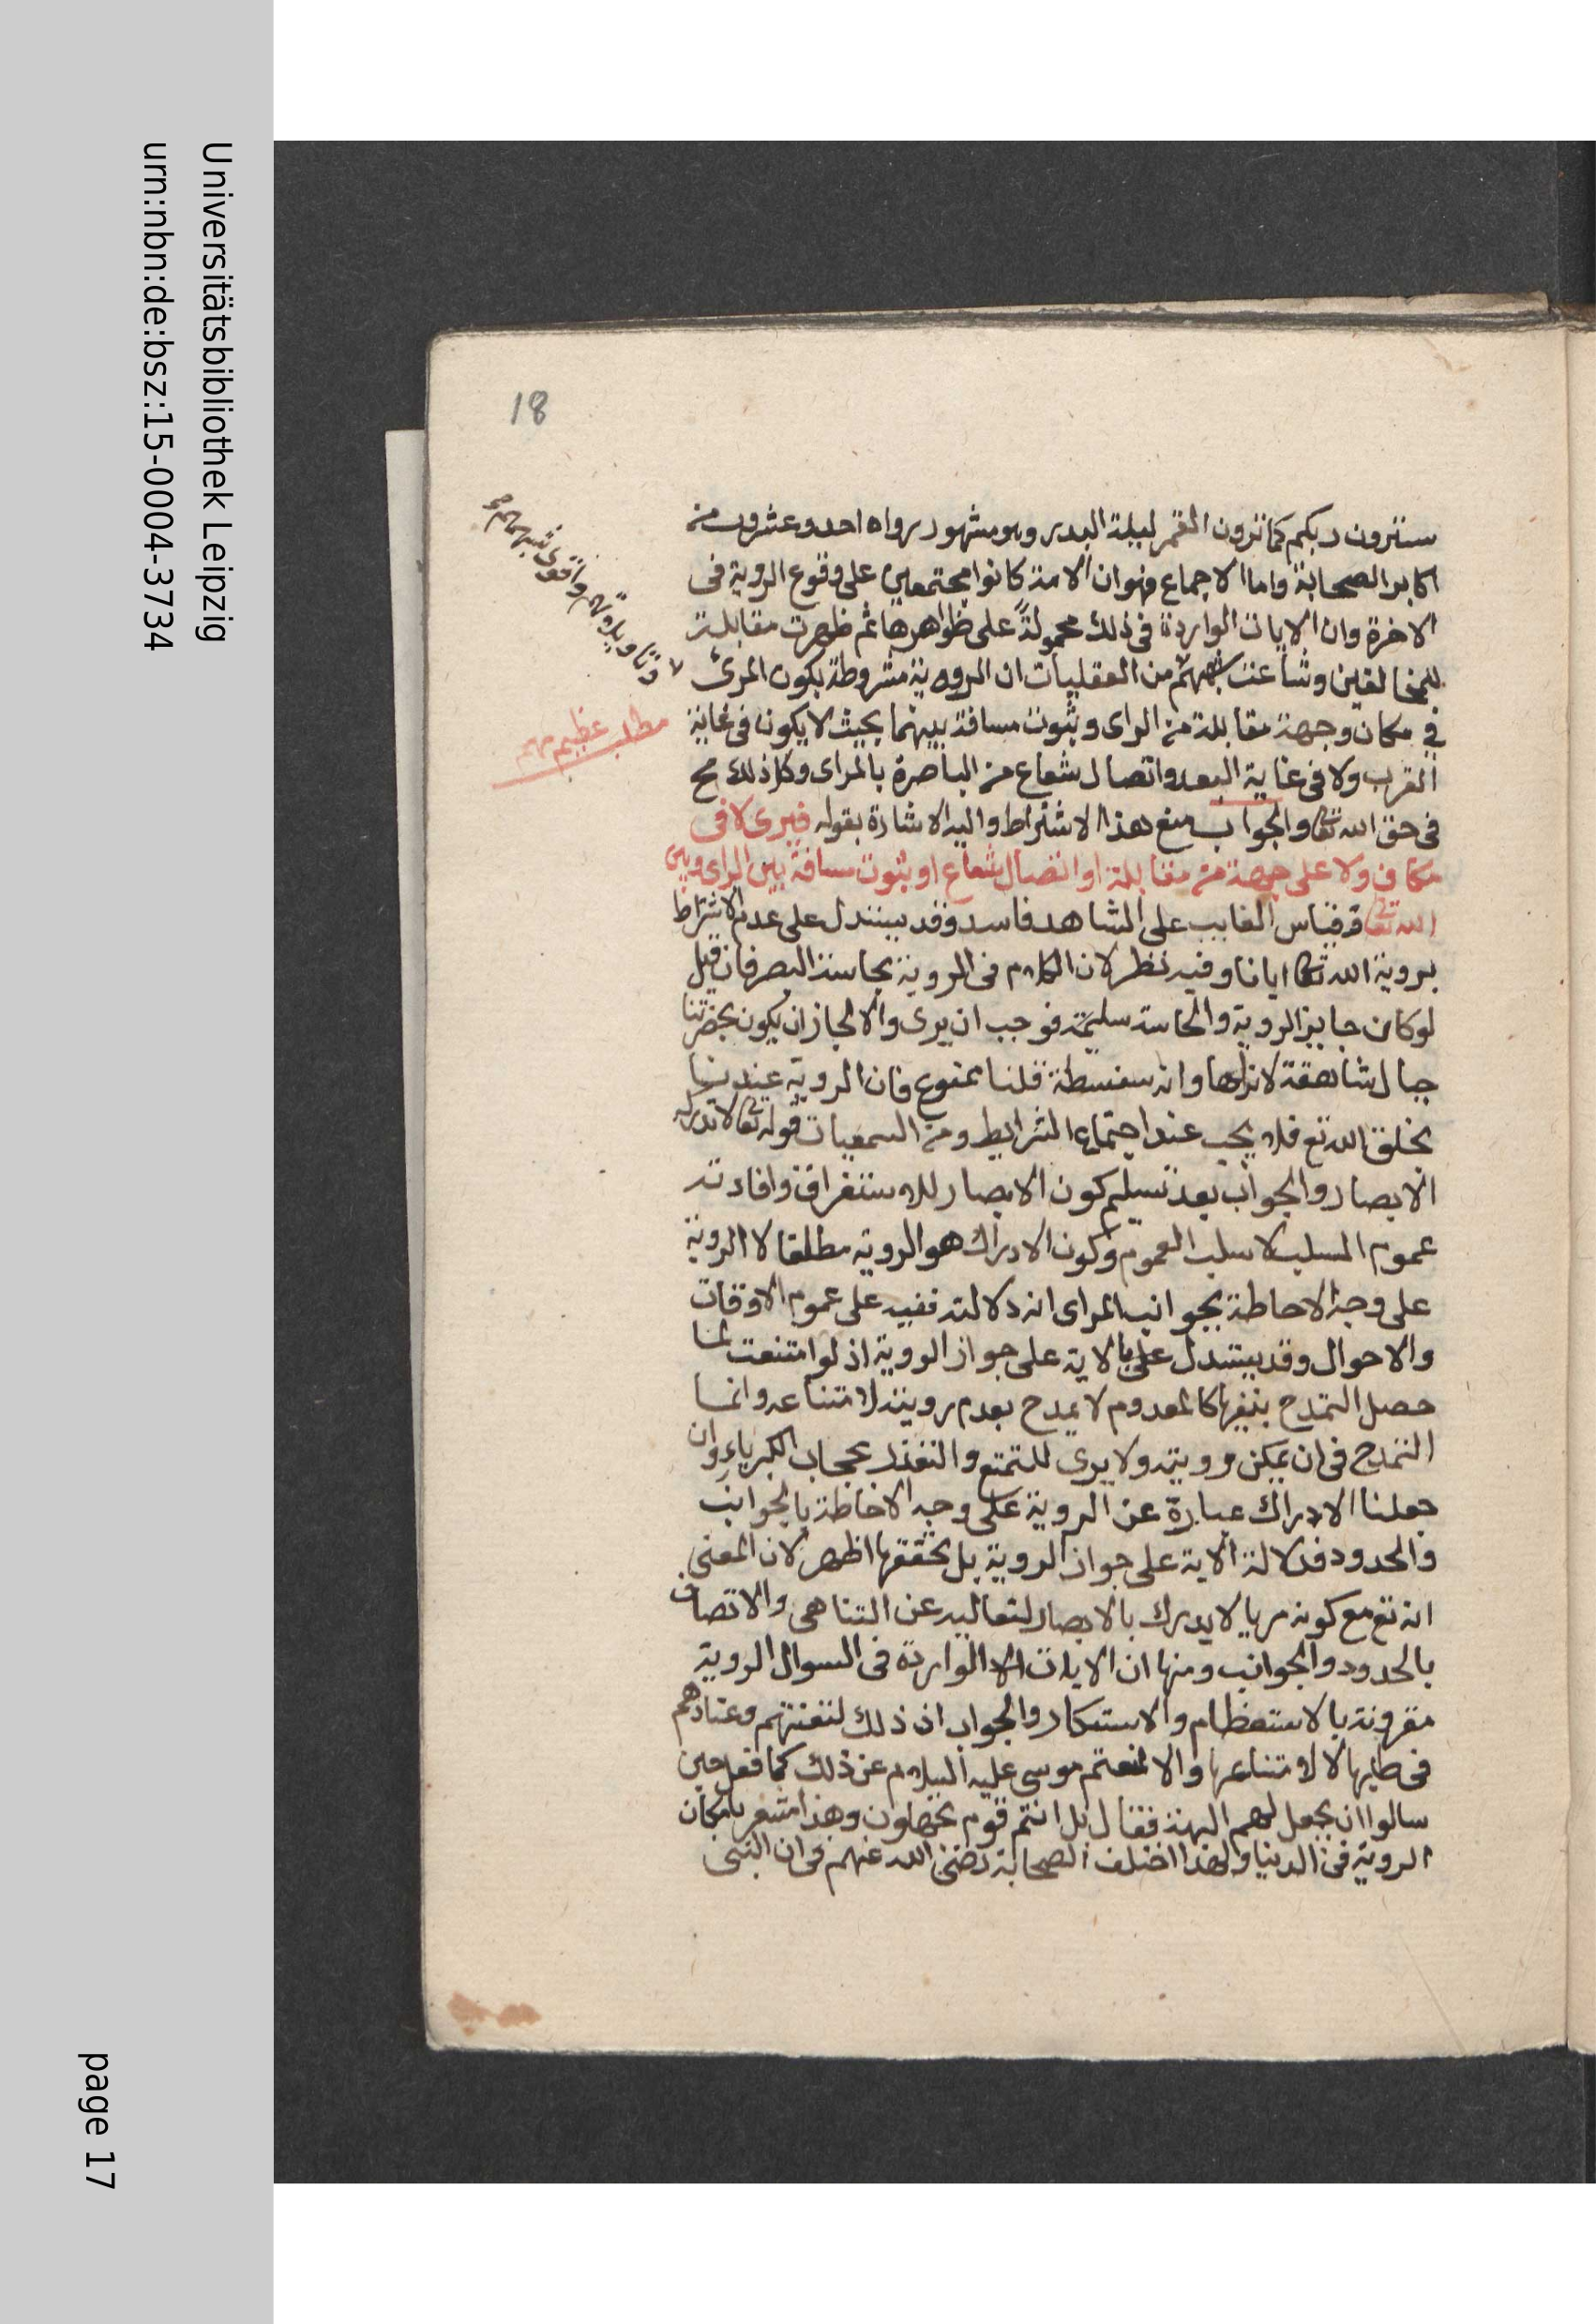 Universitätsbibliothek Leipzig
urn:nbn:de:bsz:15-0004-3734
page 17
18
سترون ربكم كما ترون القمر ليلة البدر وهو مشهور رواه احد وعشرون من
اكابر الصحابة واما الاجماع فهو ان الامة كانوا مجتمعين على وقوع الروية في
الاخرة وان الايات الواردة في ذلك محمولة على ظواهرها ثم ظهرت مقابلة
للمخالفين وشاعت شبههم من العقليات ان الروية مشروطة بكون المرئ
وتاويلاتهم واقوى شبهاتهم
في مكان وجهة مقابلة من الراى وثبوت مسافة بينهما بحيث لا يكون في غاية
مطلب عظيم مهم
القرب ولا في غاية البعد واتصال شعاع من الباصرة بالمراى وكل ذلك مح
في حق الله تعا والجواب منع هذا الاشتراط واليه الاشارة بقوله فيرى لا في
مكان ولا على جهة من مقابلة او اتصال شعاع او ثبوت مسافة بين الراى وبين
الله تعا وقياس الغايب على الشاهد فاسد وقد يستدل على عدم الاشتراط
بروية الله تعا ايانا وفيه نظر لان الكلام في الروية بحاسة البصر فان قيل
لو كان جايز الروية والحاسة سليمة فوجب ان يرى والا لجاز ان يكون بحضرتنا
جبال شاهقة لا نراها وانه سفسطة قلنا ممنوع فان الروية عندنا
بخلق الله تع فلا يجب عند اجتماع الشرايط ومن السمعيات قوله تعا لا تدركه
الابصار والجواب بعد تسليم كون الابصار للاستغراق وافادته
عموم السلب لا سلب العموم وكون الادراك هو الروية مطلقا لا الروية
على وجه الاحاطة بجوانب المراى انه دلالته فيه على عموم الاوقات
والاحوال وقد يستدل على بالاية على جواز الروية اذ لو امتنعت لما
حصل التمدح بنفيها كالمعدوم لا يمدح بعدم رويته لامتناعه وانما
التمدح في ان يمكن رويته ولا يرى للتمتع والتعذر بحجاب الكبرياء وان
جعلنا الادراك عبارة عن الروية على وجه الاحاطة بالجوانب
والحدود فدلالة الاية على جواز الروية بل تحققها اظهر لان المعنى
انه تع مع كونه مريا لا يدرك بالابصار لتعاليه عن التناهى والاتصاف
بالحدود والجوانب ومنها ان الايات الواردة في السوال الروية
مقرونة بالاستعظام والاستكار والجواب ان ذلك لتعنتهم وعنادهم
في طلبها لا لامتناعها والا لمنعتم موسى عليه السلام عن ذلك كما فعل حين
سالوا ان يجعل لهم الهة فقال بل انتم قوم تجهلون وهذا مشعر بامكان
الروية في الدنيا ولهذا اختلف الصحابة رضى الله عنهم في ان النبى